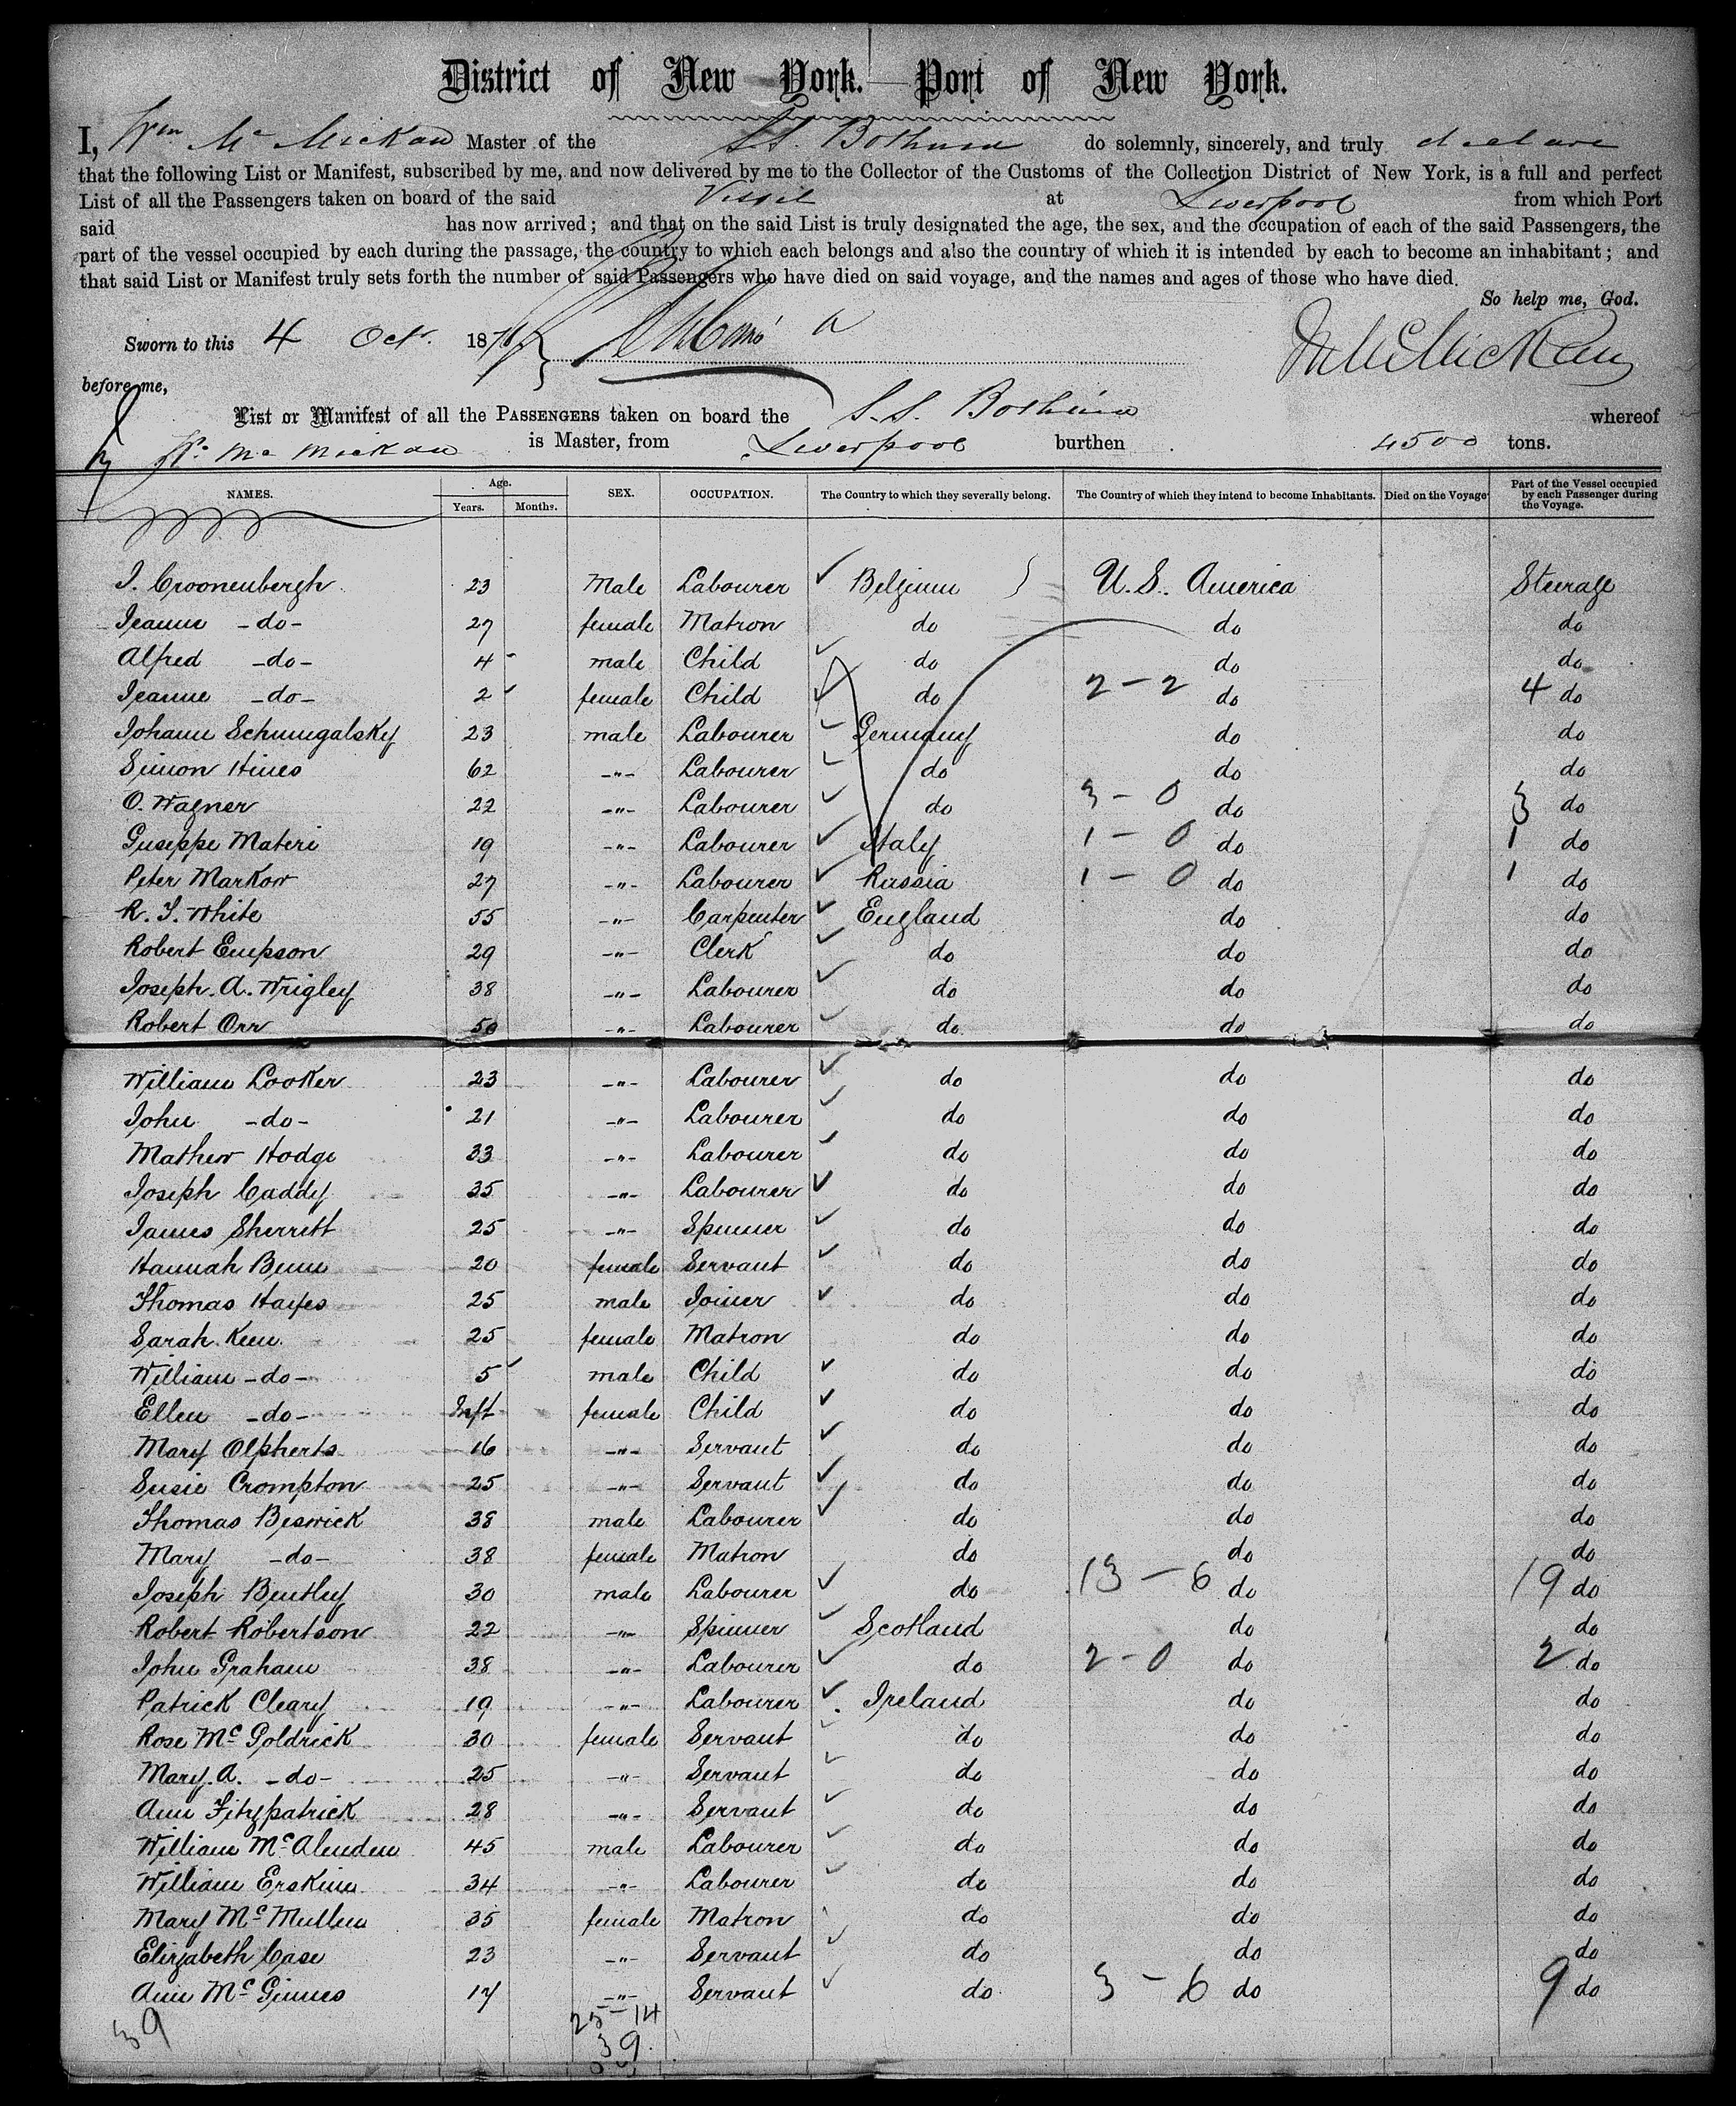 District of New York. Port of New York.
I, Wm Mc Mickan Master of the S.S. Bothnia do solemnly, sincerely, and truly declare
that the following List or Manifest, subscribed by me, and now delivered by me to the Collector of the Customs of the Collection District of New York, is a full and perfect
List of all the Passengers taken on board of the said Vessel at Liverpool from which Port
said has now arrived; and that on the said List is truly designated the age, the sex, and the occupation of each of the said Passengers, the
part of the vessel occupied by each during the passage, the country to which each belongs and also the country of which it is intended by each to become an inhabitant; and
that said List or Manifest truly sets forth the number of said Passengers who have died on said voyage, and the names and ages of those who have died.
So help me, God.
Sworn to this 4 Oct. 187
before me,
List or Manifest of all the PASSENGERS taken on board the S.S. Bothnia whereof
Wm Mc Mickan is Master, from Liverpool burthen 4500 tons.
NAMES. Age. Years. Months. SEX. OCCUPATION. The Country to which they severally belong. The Country of which they intend to become Inhabitants. Died on the Voyage Part of the Vessel occupied by each Passenger during the Voyage.
J. Croonenbergh 23 Male Labourer Belgium U.S. America Steerage
Jeanne -do- 27 female Matron do do do
Alfred -do- 4 male Child do do do
Jeanne -do- 2 female Child do 2-2 do 4 do
Johann Schumgalsky 23 male Labourer Germany do do
Simon Hines 62 -"- Labourer do do do
O. Wagner 22 -"- Labourer do 3-0 do 3 do
Guseppe Materi 19 -"- Labourer Italy 1-0 do 1 do
Peter Markow 27 -"- Labourer Russia 1-0 do 1 do
R. T. White 55 -"- Carpenter England do do
Robert Empson 29 -"- Clerk do do do
Joseph. A. Wrigley 38 -"- Labourer do do do
Robert Orr 50 -"- Labourer do do do
William Looker 23 -"- Labourer do do do
John -do- 21 -"- Labourer do do do
Mathew Hodge 33 -"- Labourer do do do
Joseph Caddy 35 -"- Labourer do do do
James Sherritt 25 -"- Spinner do do do
Hannah Bunn 20 female Servant do do do
Thomas Hayes 25 male Joiner do do do
Sarah Keen 25 female Matron do do do
William -do- 5 male Child do do do
Ellen -do- Inft female Child do do do
Mary Olpherts 16 -"- Servant do do do
Susie Crompton 25 -"- Servant do do do
Thomas Beswick 38 male Labourer do do do
Mary -do- 38 female Matron do do do
Joseph Bentley 30 male Labourer do 13-6 do 19 do
Robert Robertson 22 -"- Spinner Scotland do do
John Graham 38 -"- Labourer do 2-0 do 2 do
Patrick Cleary 19 -"- Labourer Ireland do do
Rose Mc Goldrick 30 female Servant do do do
Mary. A. -do- 25 -"- Servant do do do
Ann Fitzpatrick 28 -"- Servant do do do
William Mc Alenden 45 male Labourer do do do
William Erskine 34 -"- Labourer do do do
Mary Mc Mullen 35 female Matron do do do
Elizabeth Case 23 -"- Servant do do do
Ann Mc Ginnes 17 -"- Servant do 3-6 do 9 do
39 25-14
39